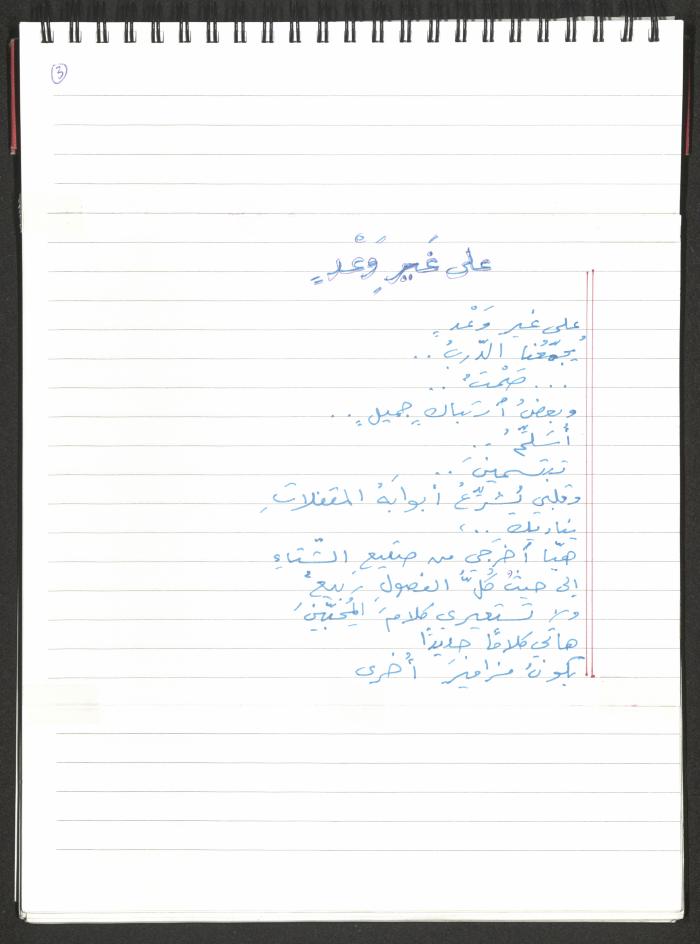 3
على غَيرِ وَعْدٍ
على غير وَعْدٍ
يُجَمِّعُنا الدّربُ ..
... صَمْتٌ ..
وبعضُ اُرتَباكٍ جميلٍ ..
أُسَلِّمُ ..
تبتسمينَ ..
وقلبي يُشَرِّعُ أبوابَهُ المقفلاتِ
يناديكِ ..،
هيّا اُخرُجي من صقيعِ الشّتاءِ
إلى حيثُ كُلُّ الفصولِ رَبيعٌ
ولا تَستعيري كلامَ المُحبّينَ
هاتي كلامًا جديدًا
يكونُ مزاميرَ أُخرى